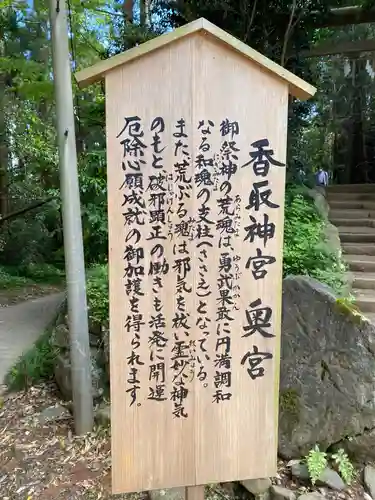 香取神宮奥宮
御祭神の荒魂は、勇武果敢に円満調和
なる和魂の支柱(ささえ)となっている。
また、荒ぶる魂は邪気を祓い霊妙な神気
のもと破邪顕正の働きも活発に開運
厄除心願成就の御加護を得られます。